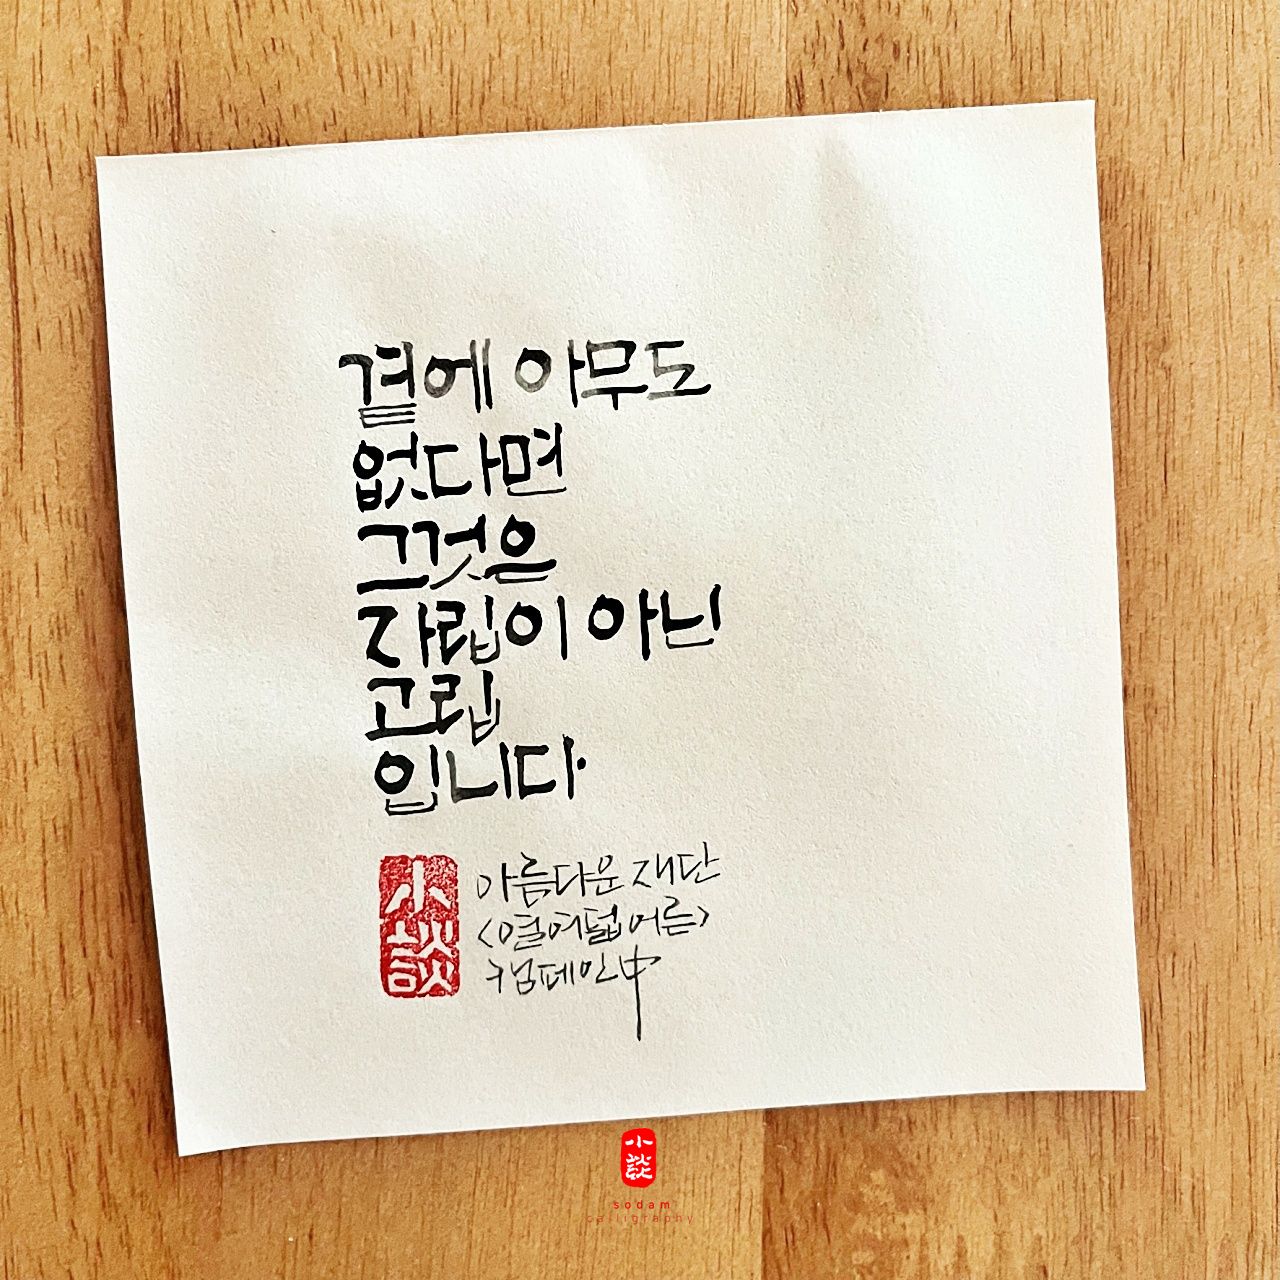 곁에 아무도
없다면
그것은
자립이 아닌
고립
입니다.
小談
아름다운재단
<열여덟 어른>
캠페인中
小談
sodam
calligraphy